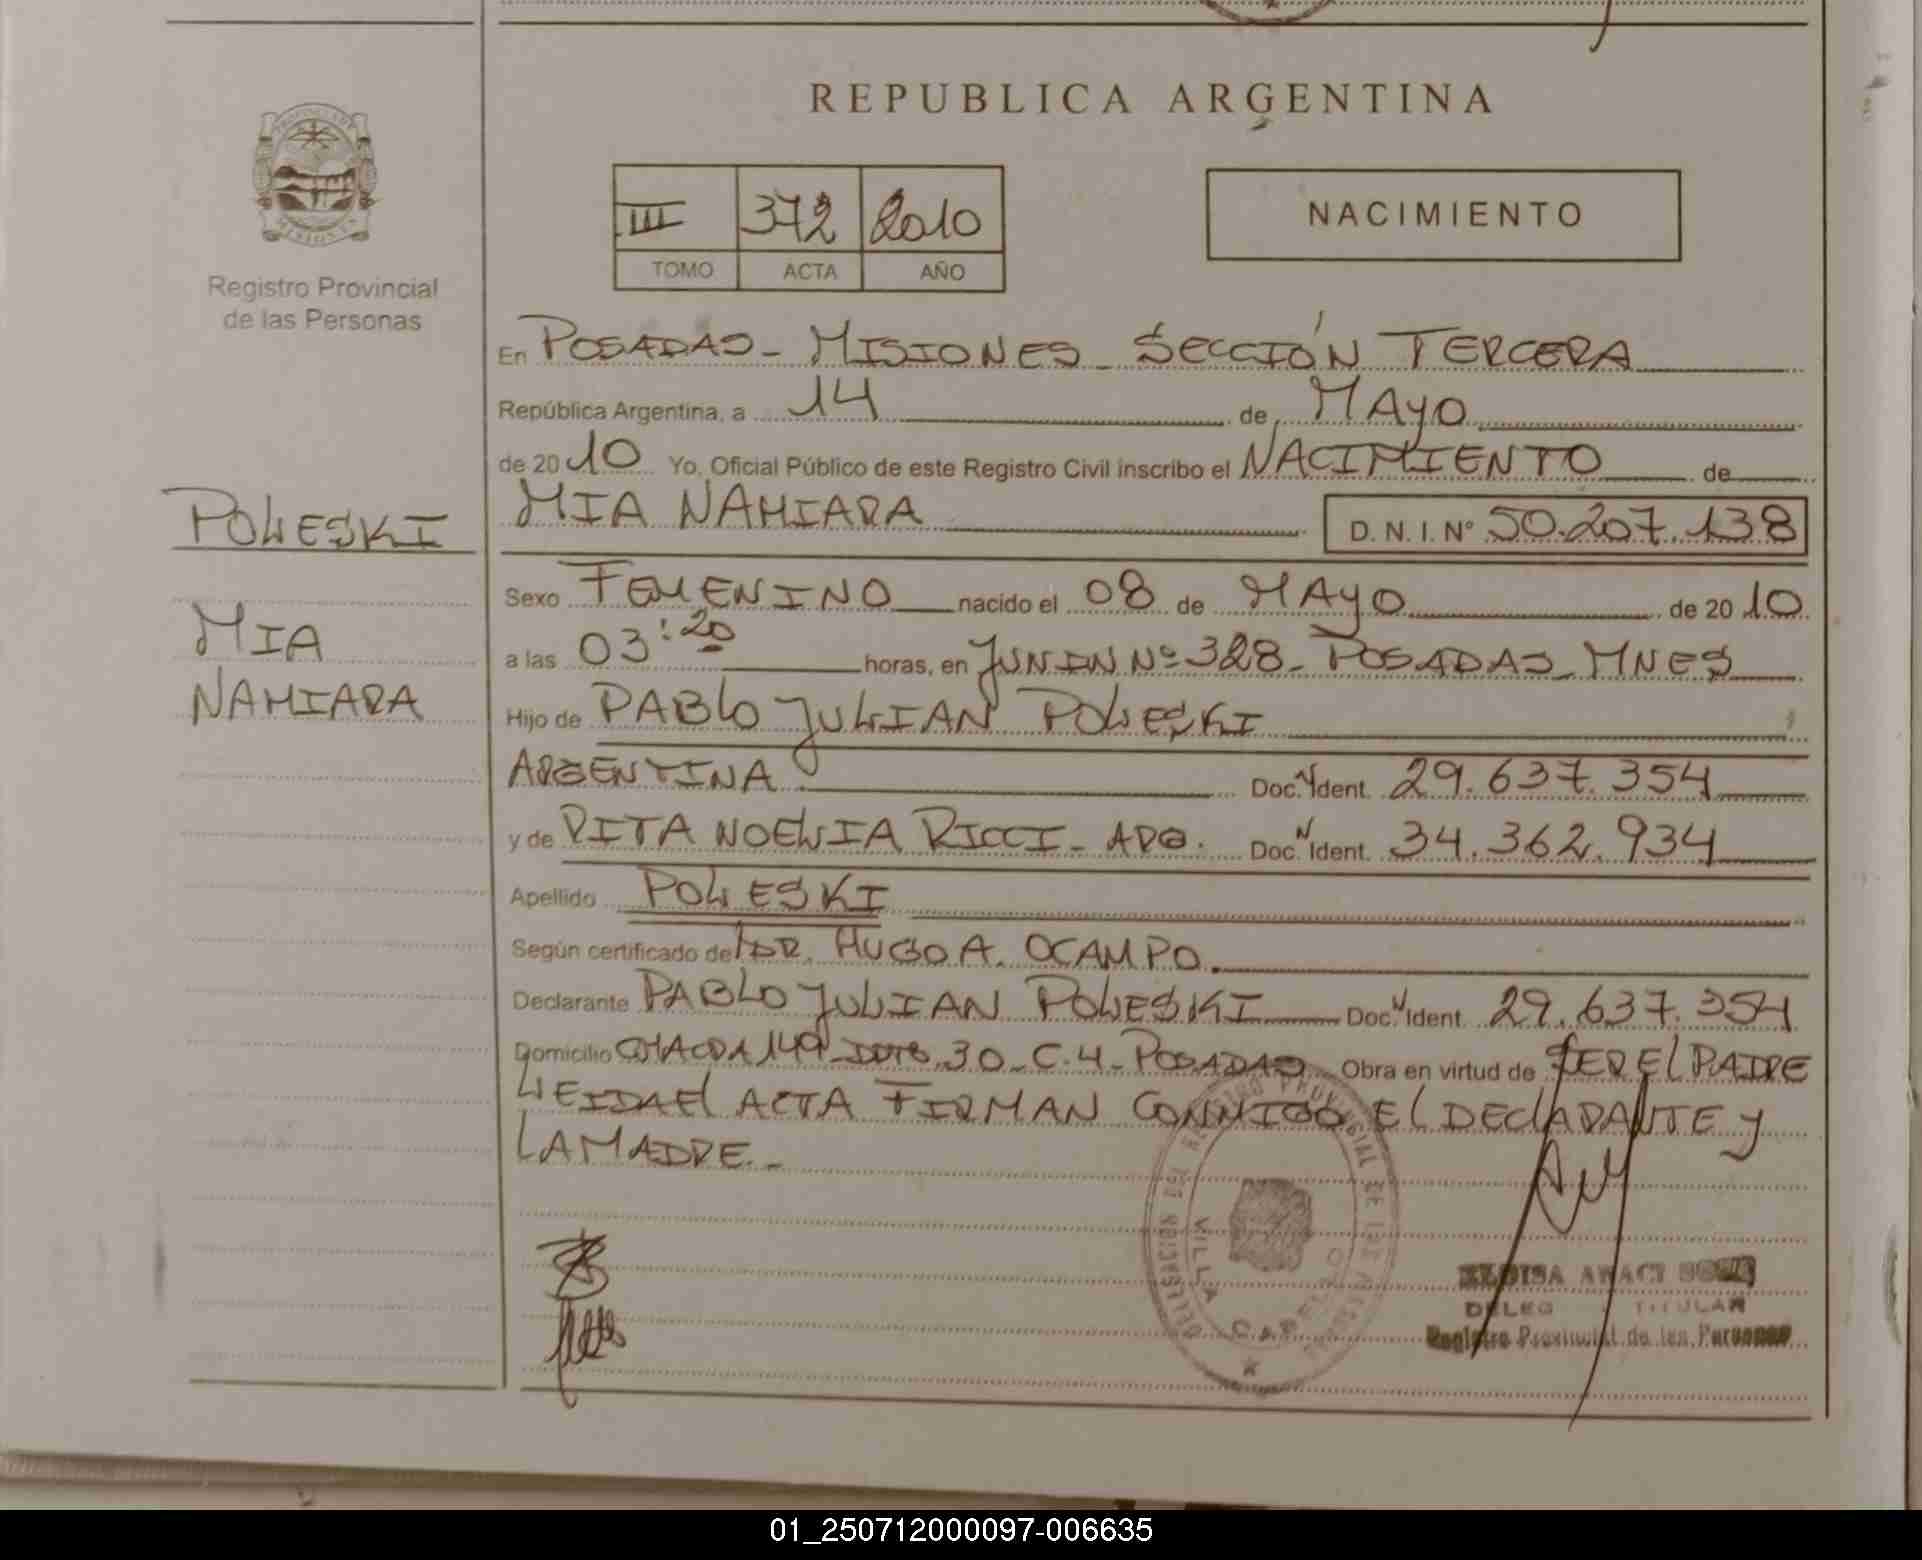 REPUBLICA ARGENTINA
III 372 2010
TOMO ACTA AÑO
NACIMIENTO
Registro Provincial
de las Personas
POLESKI
MIA
NAHIARA
En POSADAS - MISIONES - SECCIÓN TERCERA
República Argentina, a 14 de MAYO
de 2010 Yo, Oficial Público de este Registro Civil inscribo el NACIMIENTO de
MIA NAHIARA D. N. I. Nº 50.207.138
Sexo FEMENINO nacido el 08 de MAYO de 2010
a las 03:20 horas, en JUNIN Nº 328 - POSADAS - MNES
Hijo de PABLO JULIAN POLESKI
ARGENTINA Doc. N Ident. 29.637.354
y de RITA NOELIA RICCI - ARG. Doc. N Ident. 34.362.934
Apellido POLESKI
Según certificado del DR. HUGO A. OCAMPO.
Declarante PABLO JULIAN POLESKI Doc. N Ident. 29.637.354
Domicilio CHACRA 149 - DPTO. 30 - C.4 - POSADAS Obra en virtud de SER EL PADRE
LEIDA EL ACTA FIRMAN CONMIGO EL DECLARANTE Y
LA MADRE.-
DELEGACION DEL REGISTRO PROVINCIAL DE LAS PERSONAS
VILLA CABELLO
DELEG TITULAR
Registro Provincial de las Personas
01_250712000097-006635